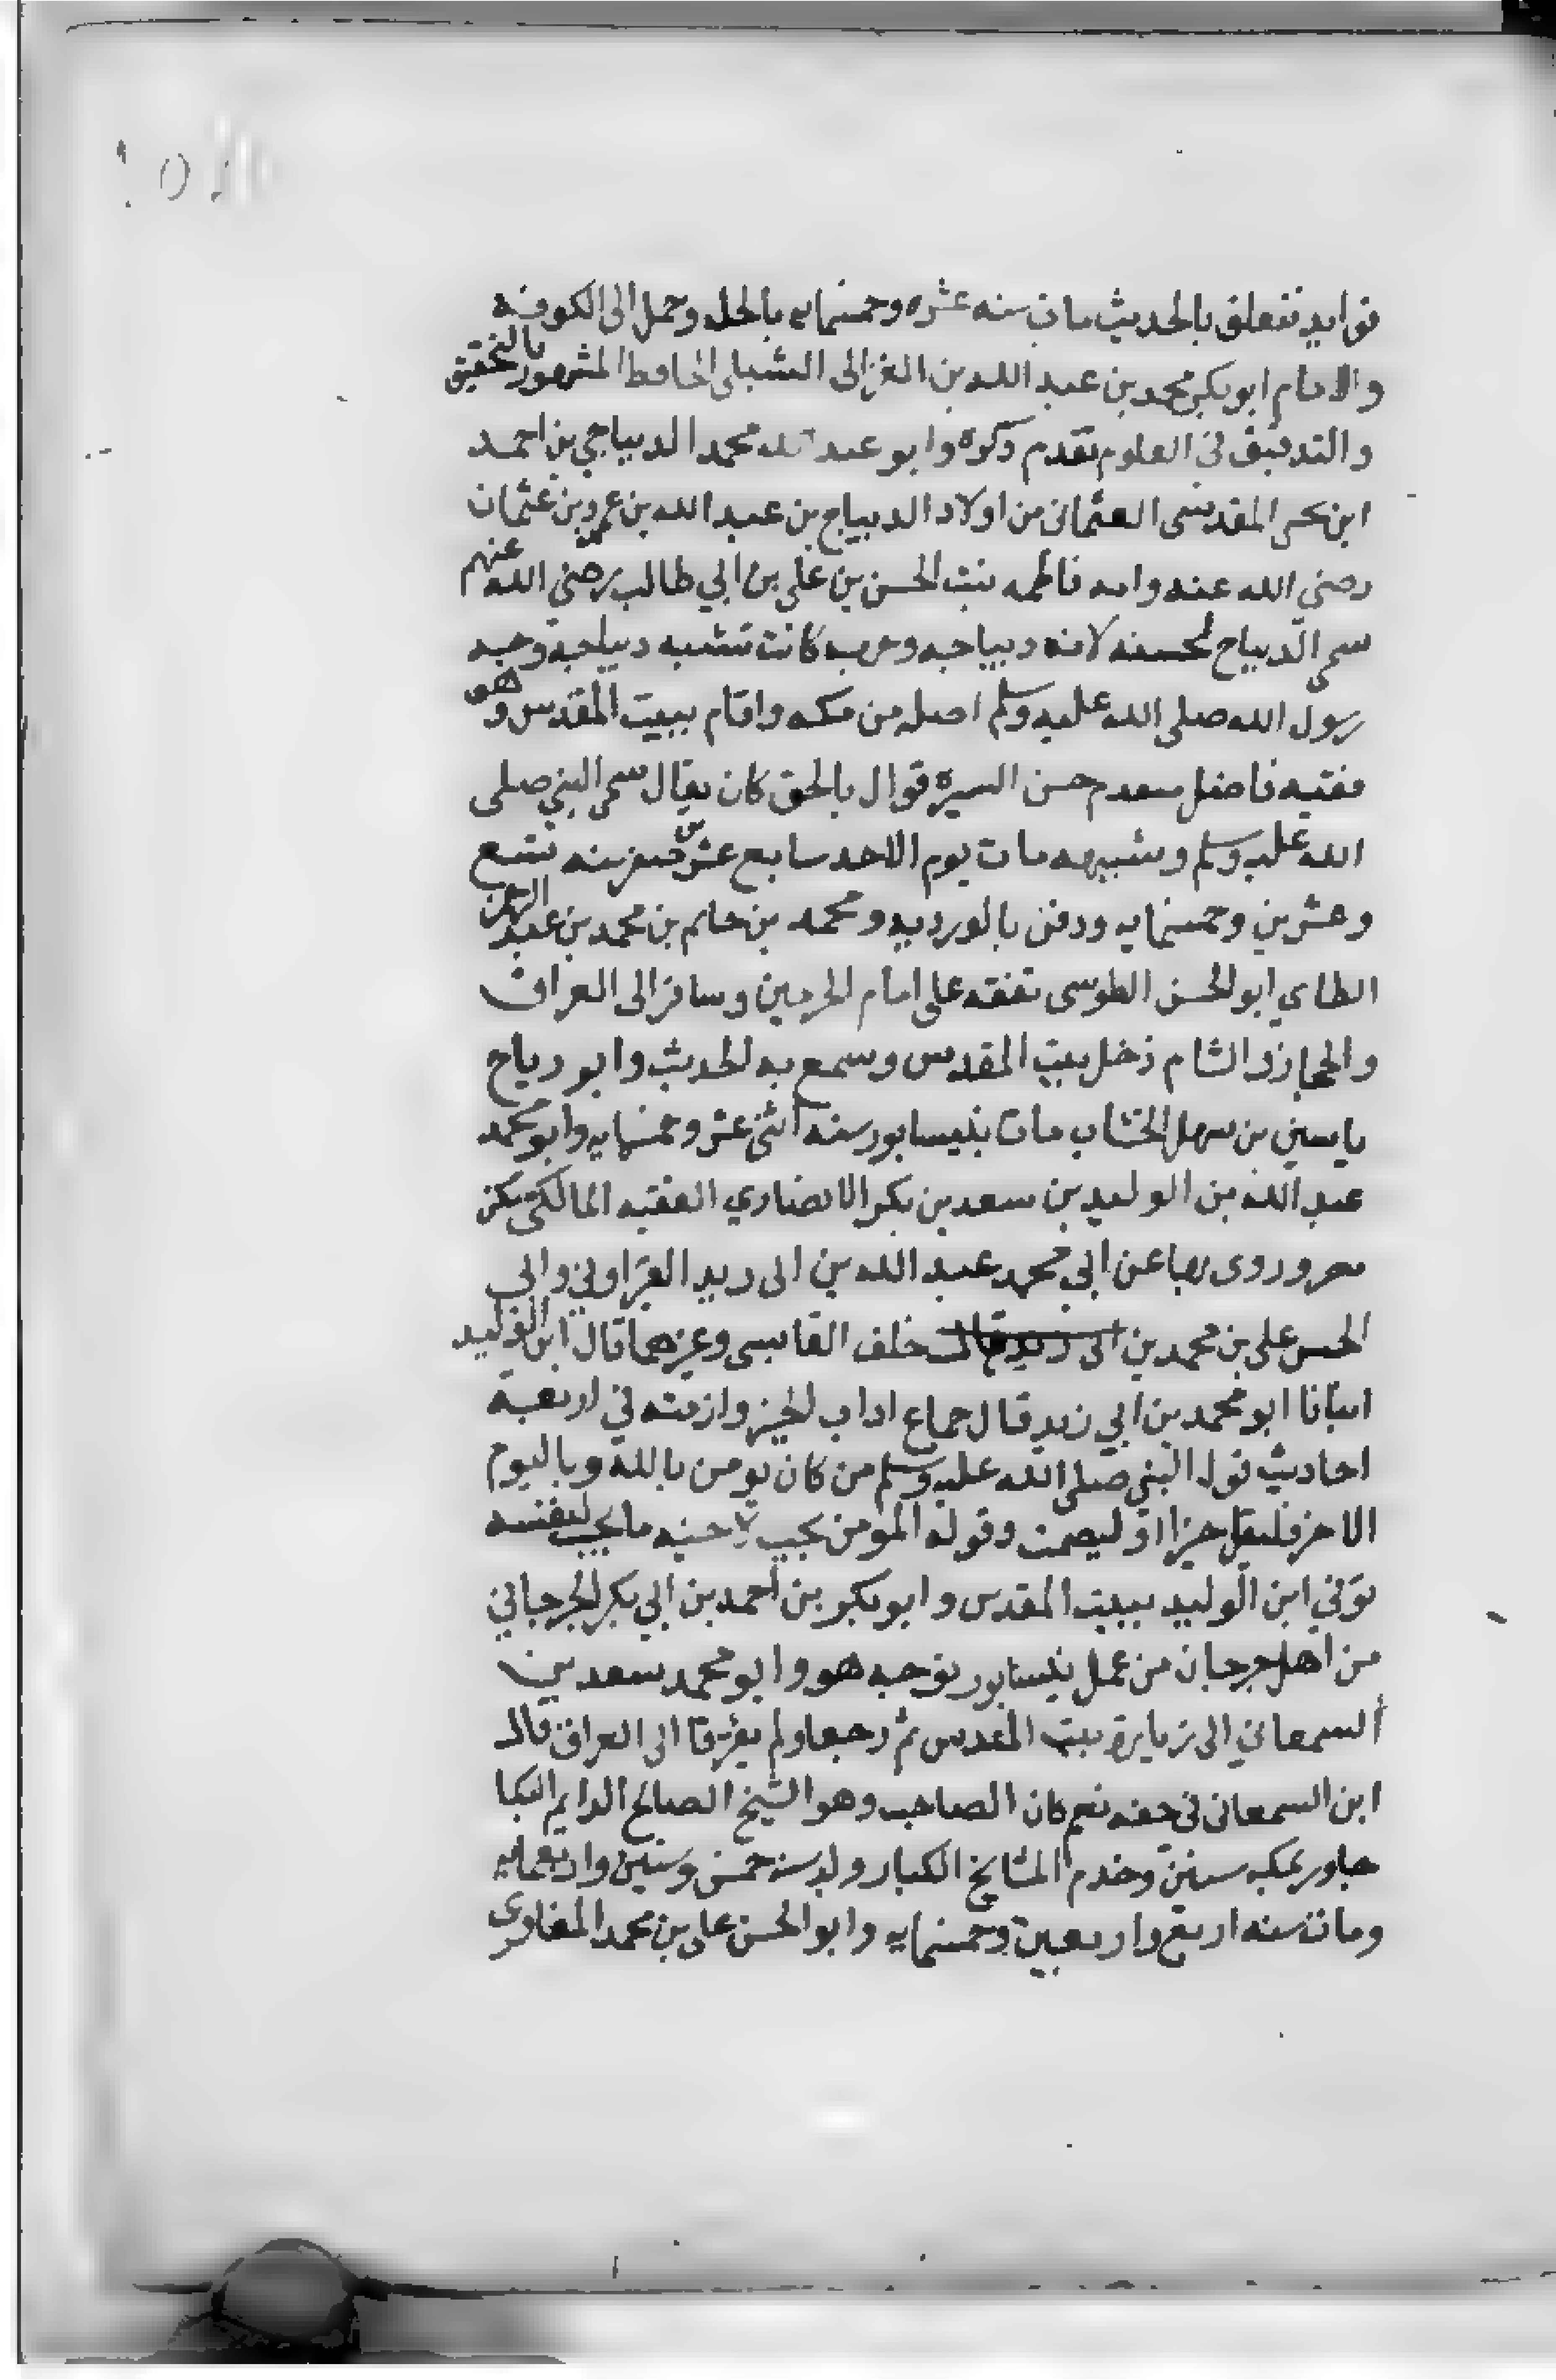 فوايد تتعلق بالحديث مات سنه عشره وخمسمايه بالحله وحمل الى الكوفه
والامام ابوبكر محمد بن عبد الله بن الغزالى الشبلى الحافظ المشهور بالتحقيق
والتدقيق في العلوم تقدم ذكره وابو عبد الله محمد الديباجي بن احمد
ابن يحيى المقدسى العثمانى من اولاد الديباج بن عبد الله بن عمرو بن عثمان
رضي الله عنه وامه فاطمه بنت الحسن بن على بن ابي طالب رضي الله عنهم
سمى الديباج لحسنه لانه ديباجه وجهه كانت تشبه ديباجة وجه
رسول الله صلى الله عليه وسلم اصله من مكه واقام ببيت المقدس وهو
فقيه فاضل حسن السيره قوال بالحق كان يقال سمى النبي صلى
الله عليه وسلم وشبيهه مات يوم الاحد سابع عشر صفر سنه تسع
وعشرين وخمسمايه ودفن بالورديه ومحمد بن حاتم بن محمد بن عبد الرحمن
الطاي ابو الحسن الطوسى تفقه على امام الحرمين وسافر الى العراق
والحجاز والشام دخل بيت المقدس وسمع به الحديث وابو رياح
ياسين بن سهل الخشاب مات بنيسابور سنه اثنى عشر وخمسمايه وابو محمد
عبد الله بن الوليد بن سعد بن بكر الانصاري الفقيه المالكى سكن
مصر وروى بها عن ابي محمد عبد الله بن ابى زيد القيراوني وابى
الحسن على بن محمد بن خلف القابسى وغيرهما قال ابن الوليد
انبانا ابو محمد بن ابي زيد قال جماع اداب الخير وازمته في اربعة
احاديث قول النبى صلى الله عليه وسلم من كان يومن بالله وباليوم
الاخر فليقل خيرا او ليصمت وقوله المومن يحب لاخيه ما يحب لنفسه
توفي ابن الوليد ببيت المقدس وابو بكر بن احمد بن ابي بكر الجرجاني
من اهل جرجان من عمل نيسابور توجه هو وابو محمد سعد بن
السمعاني الى زيارة بيت المقدس ثم رجعا ولم يفترقا الى العراق قال
ابن السمعانى في حقه نعم كان الصاحب وهو الشيخ الصالح الدايم البكا
جاور بمكه سنين وخدم المشايخ الكبار ولد سنه خمس وستين واربعمايه
ومات سنه اربع واربعين وخمسمايه وابو الحسن على بن محمد المغافرى